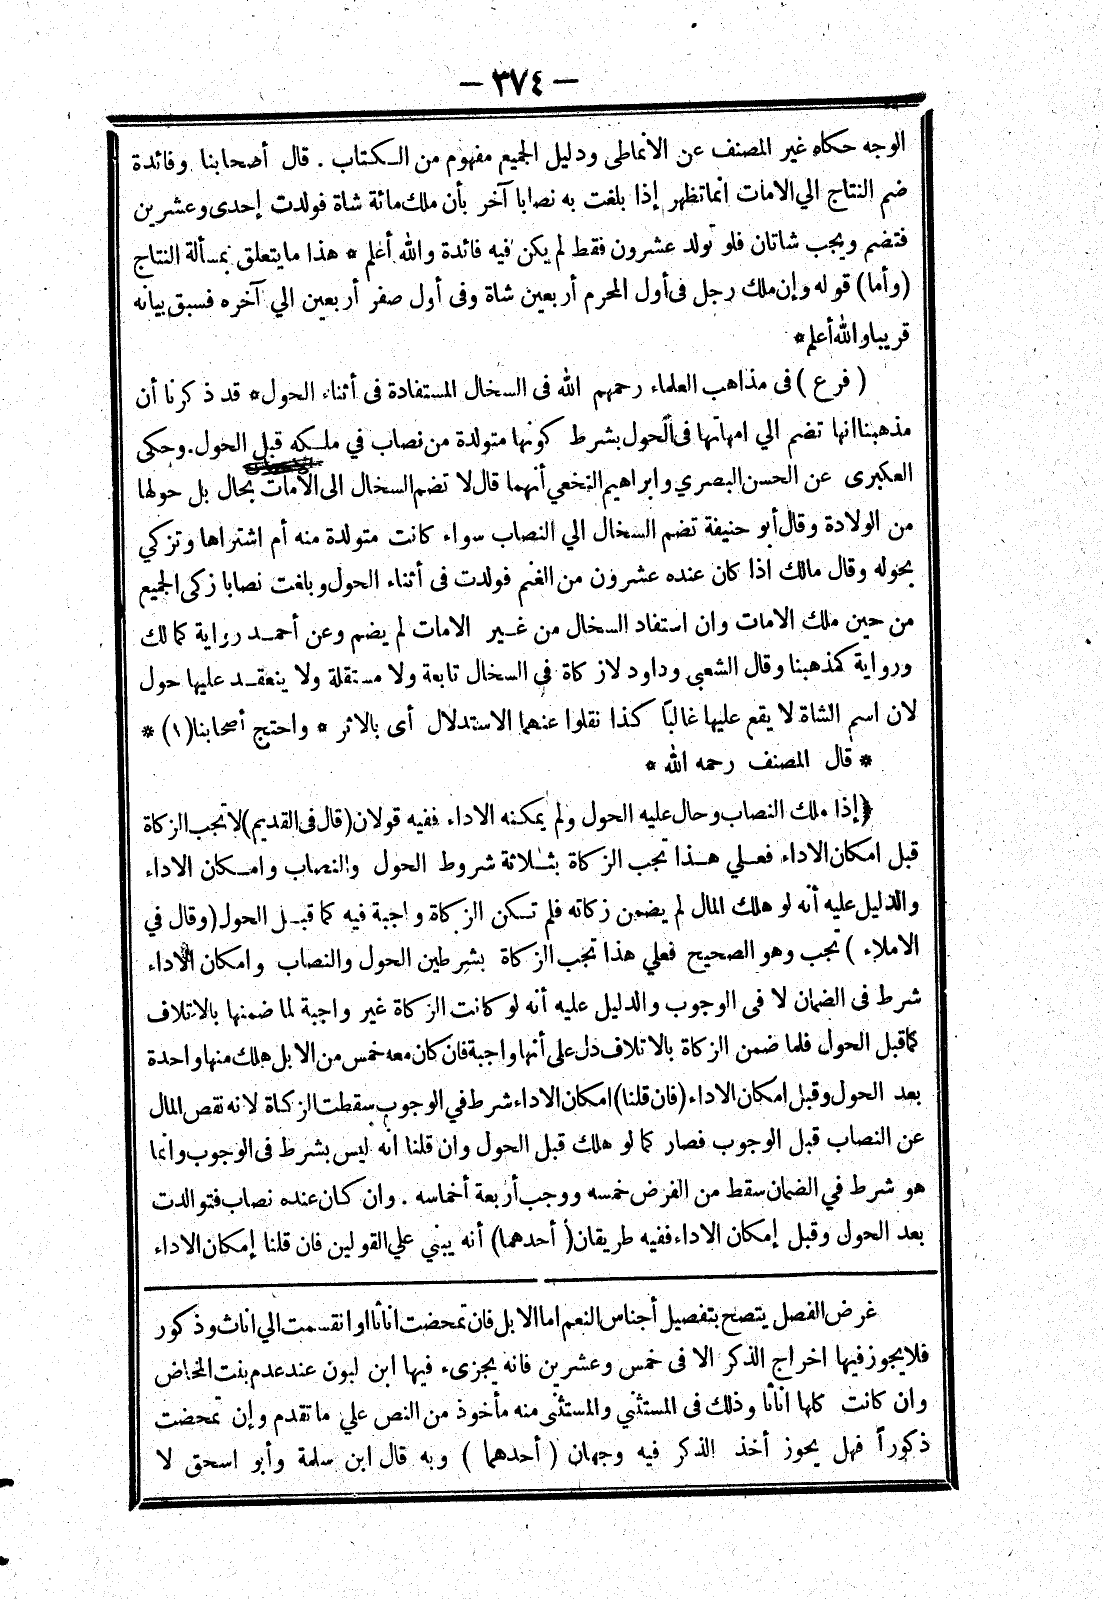 — ٣٧٤ —
الوجه حكاه غير المصنف عن الانماطى ودليل الجميع مفهوم من الكتاب . قال أصحابنا وفائدة
ضم النتاج الي الامات انما تظهر إذا بلغت به نصابا آخر بأن ملك مائة شاة فولدت إحدى وعشرين
فتضم ويجب شاتان فلو تولد عشرون فقط لم يكن فيه فائدة والله أعلم * هذا ما يتعلق بمسألة النتاج
(وأما) قوله وإن ملك رجل فى أول المحرم أربعين شاة وفى أول صفر أربعين الي آخره فسبق بيانه
قريبا والله أعلم *
( فرع ) فى مذاهب العلماء رحمهم الله فى السخال المستفادة فى أثناء الحول * قد ذكرنا أن
مذهبنا انها تضم الي امهاتها فى الحول بشرط كونها متولدة من نصاب في ملكه قبل الحول . وحكى
العكبرى عن الحسن البصري وابراهيم النخعي أنهما قال لا تضم السخال الى الامات بحال بل حولها
من الولادة وقال أبو حنيفة تضم السخال الي النصاب سواء كانت متولدة منه أم اشتراها وتزكي
بحوله وقال مالك اذا كان عنده عشرون من الغنم فولدت فى أثناء الحول وبلغت نصابا زكى الجميع
من حين ملك الامات وان استفاد السخال من غير الامات لم يضم وعن أحمد رواية كمالك
ورواية كمذهبنا وقال الشعبي وداود لا زكاة في السخال تابعة ولا مستقلة ولا ينعقد عليها حول
لان اسم الشاة لا يقع عليها غالباً كذا نقلوا عنهما الاستدلال أى بالاثر * واحتج أصحابنا (١) *
* قال المصنف رحمه الله *
﴿إذا ملك النصاب وحال عليه الحول ولم يمكنه الاداء ففيه قولان (قال فى القديم) لا تجب الزكاة
قبل امكان الاداء فعلي هذا تجب الزكاة بثلاثة شروط الحول والنصاب وامكان الاداء
والدليل عليه أنه لو هلك المال لم يضمن زكاته فلم تكن الزكاة واجبة فيه كما قبل الحول (وقال في
الاملاء ) تجب وهو الصحيح فعلي هذا تجب الزكاة بشرطين الحول والنصاب وامكان الاداء
شرط فى الضمان لا فى الوجوب والدليل عليه أنه لو كانت الزكاة غير واجبة لما ضمنها بالاتلاف
كما قبل الحول فلما ضمن الزكاة بالاتلاف دل على أنها واجبة فان كان معه خمس من الابل هلك منها واحدة
بعد الحول وقبل امكان الاداء (فان قلنا) امكان الاداء شرط في الوجوب سقطت الزكاة لانه نقص المال
عن النصاب قبل الوجوب فصار كما لو هلك قبل الحول وان قلنا انه ليس بشرط فى الوجوب وانما
هو شرط في الضمان سقط من الفرض خمسه ووجب أربعة أخماسه . وان كان عنده نصاب فتوالدت
بعد الحول وقبل إمكان الاداء ففيه طريقان ( أحدهما) أنه يبني علي القولين فان قلنا إمكان الاداء
غرض الفصل يتضح بتفصيل أجناس النعم اما الابل فان تمحضت اناثا او انقسمت الي اناث وذكور
فلا يجوز فيها اخراج الذكر الا فى خمس وعشرين فانه يجزىء فيها ابن لبون عند عدم بنت المخاض
وان كانت كلها اناثا وذلك فى المستثني والمستثنى منه مأخوذ من النص علي ما تقدم وإن تمحضت
ذكوراً فهل يجوز أخذ الذكر فيه وجهان ( أحدهما ) وبه قال ابن سلمة وأبو اسحق لا